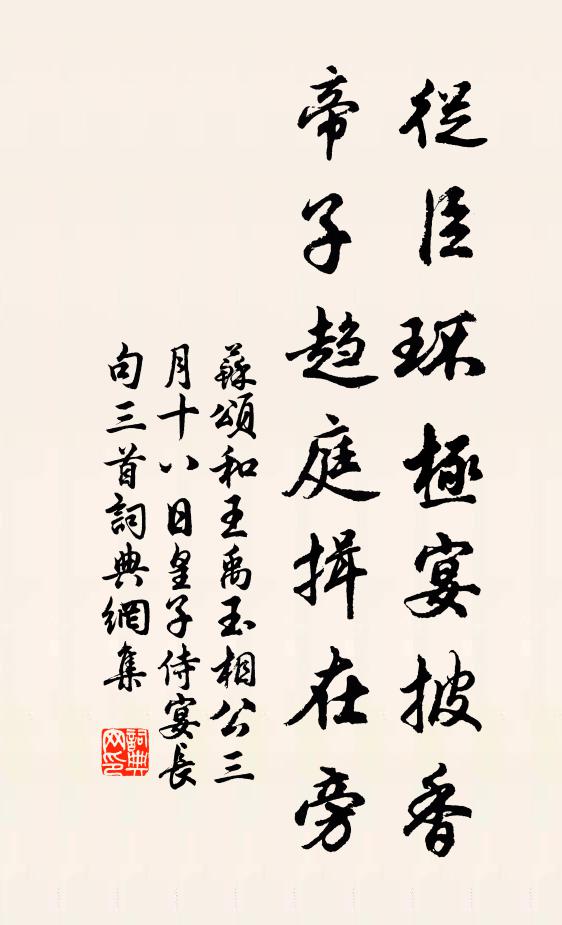 從臣环極宴披香
帝子趨庭揖在旁
蘇頌和王禹玉相公三
月十八日皇子侍宴長
句三首詞典網集
詞典
网印